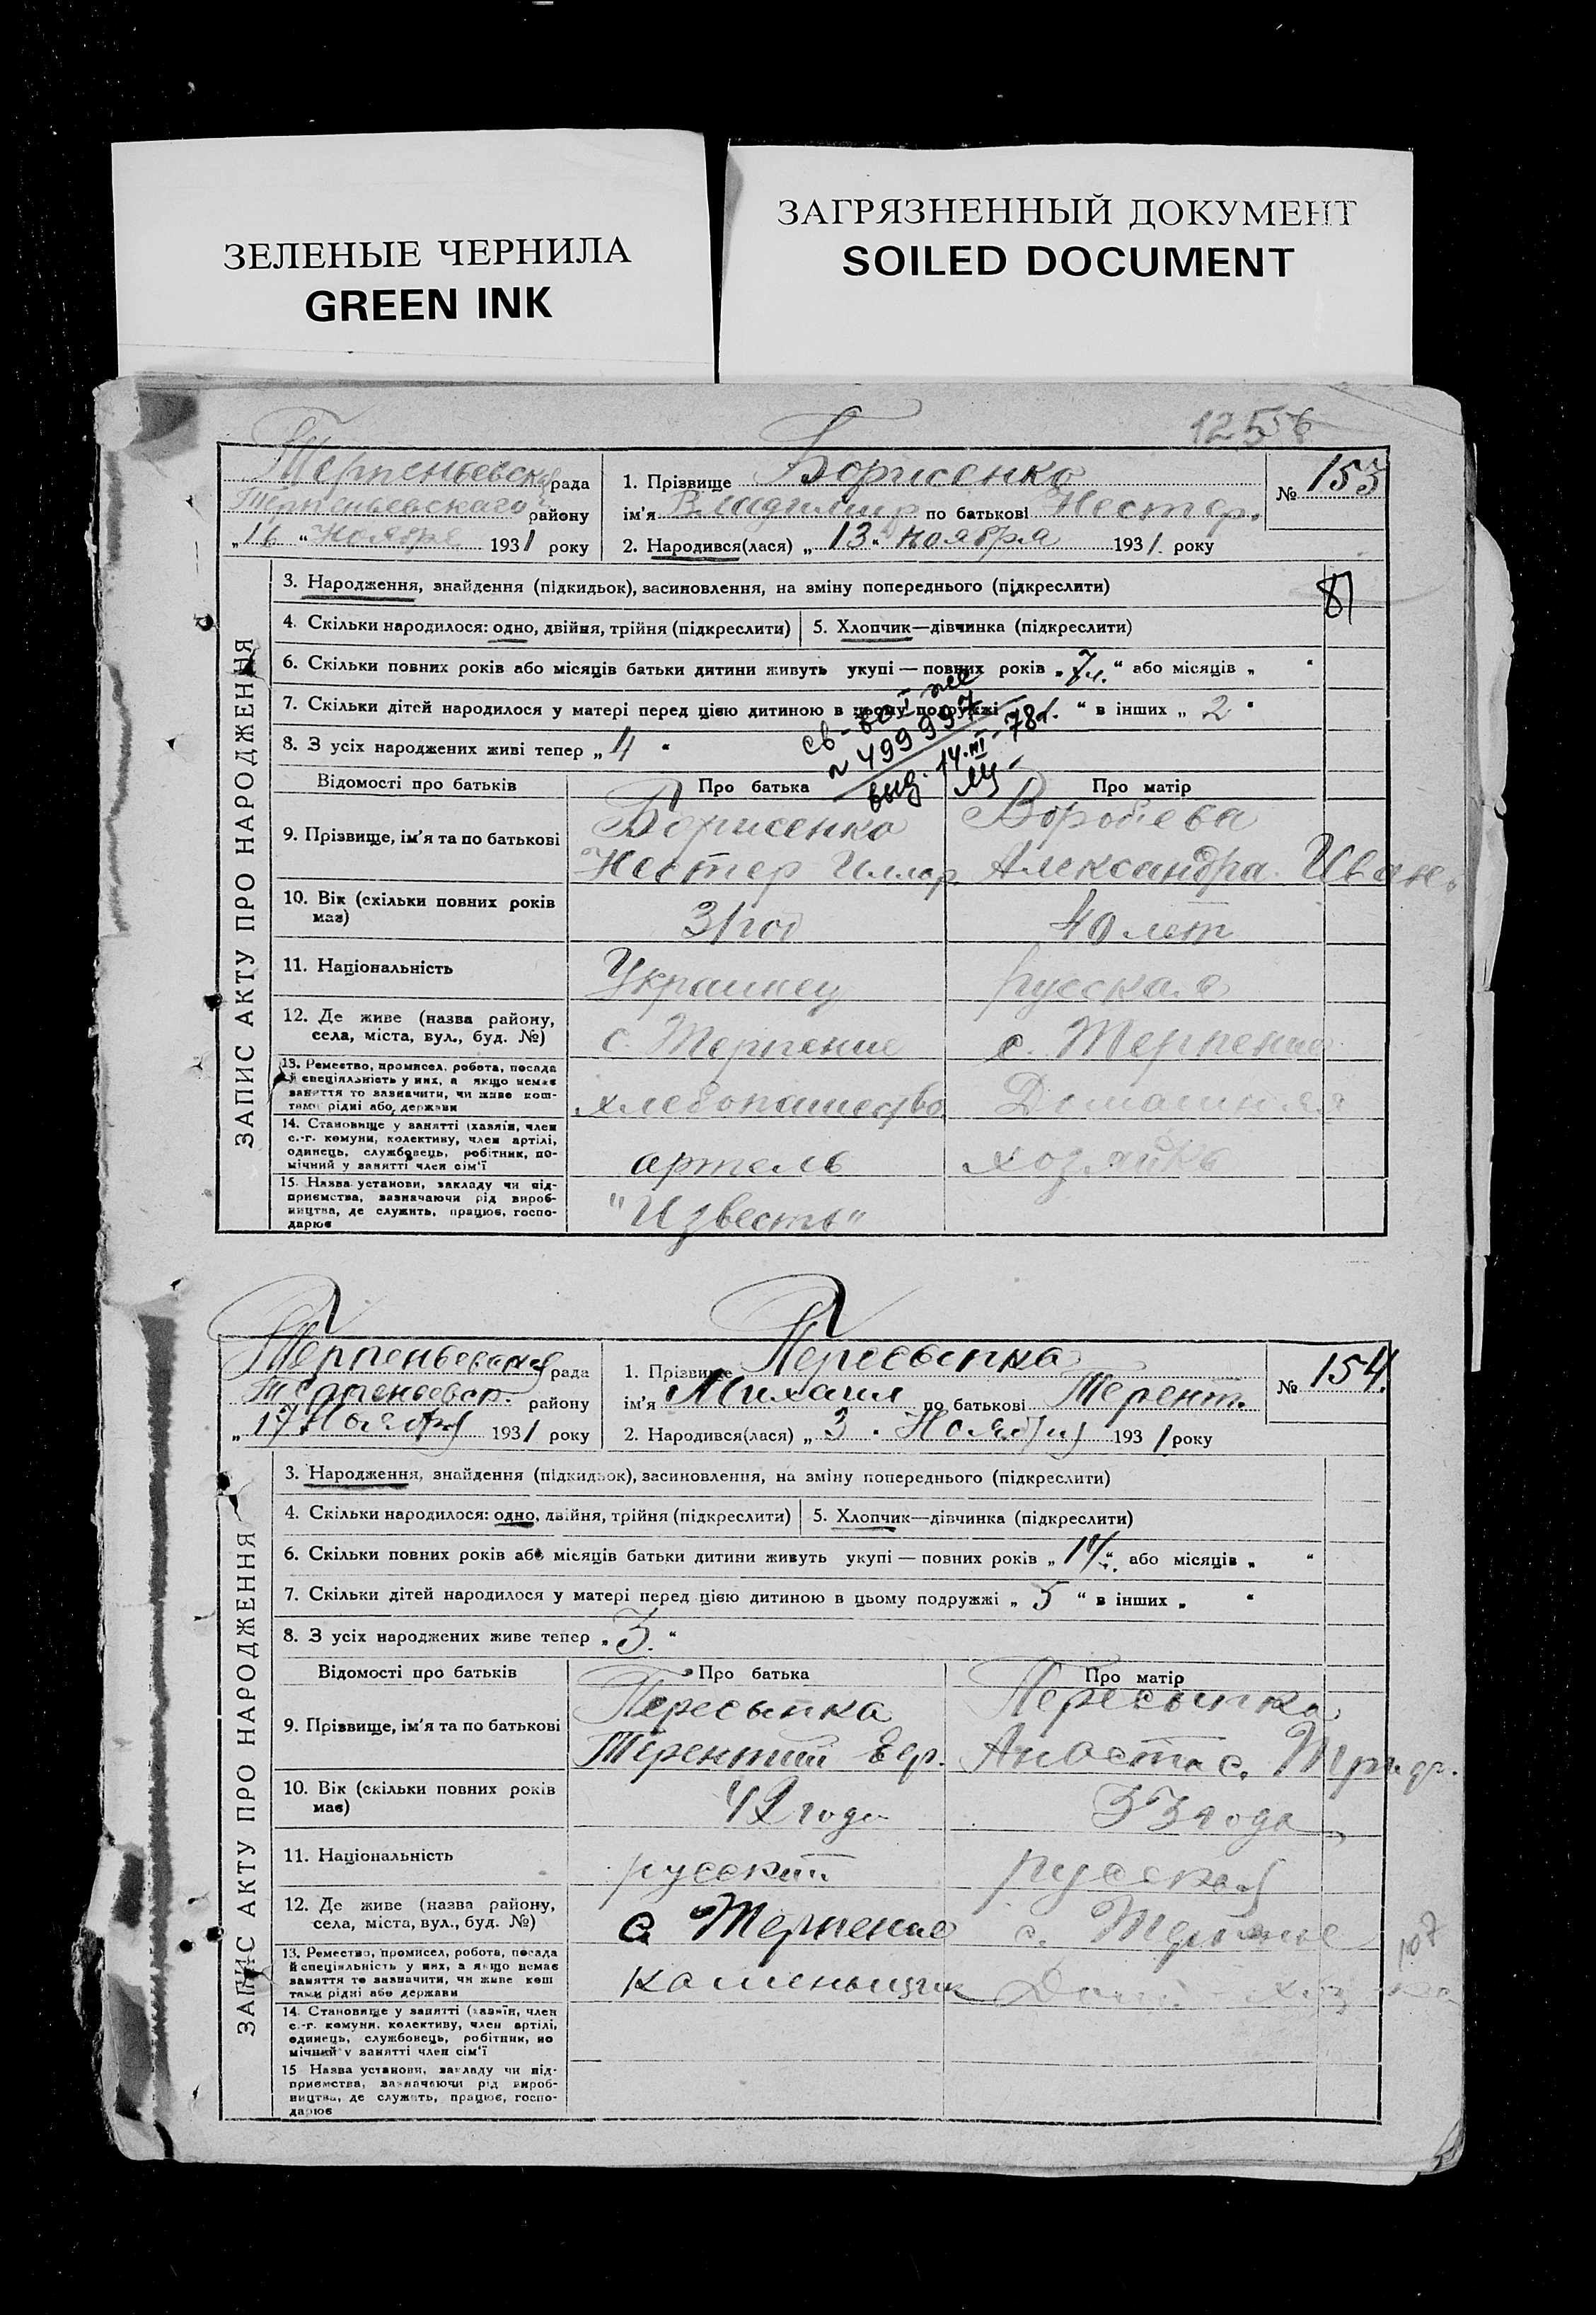 ЗЕЛЕНЫЕ ЧЕРНИЛА
GREEN INK
ЗАГРЯЗНЕННЫЙ ДОКУМЕНТ
SOILED DOCUMENT
Терпеньевская рада
Терпеньевскаго району
„16“ Ноября 1931 року
1. Прізвище Борисенко
ім'я Владимир по батькові Нестер.
2. Народився(лася) „13“ ноября 1931. року
№ 153
ЗАПИС АКТУ ПРО НАРОДЖЕННЯ
3. Народження, знайдення (підкидьок), засиновлення, на зміну попереднього (підкреслити)
4. Скільки народилося: одно, двійня, трійня (підкреслити)
5. Хлопчик—дівчинка (підкреслити)
6. Скільки повних років або місяців батьки дитини живуть укупі — повних років „ “ або місяців „ “
7. Скільки дітей народилося у матері перед цією дитиною в цьому подружжі “ в інших „ 2 “
8. З усіх народжених живі тепер „ 4 “
№ 499997
выд. 14.III-78г.
Відомості про батьків
Про батька
Про матір
9. Прізвище, ім'я та по батькові
Борисенко
Нестер Иллар
Воробьева
Александра Иван.
10. Вік (скільки повних років має)
31 год
40 лет
11. Національність
Украинец
русская
12. Де живе (назва району, села, міста, вул., буд. №)
с. Терпение
с. Терпение
13. Ремество, промисел, робота, посада й спеціяльність у них, а якщо немає заняття то зазначити, чи живе коштами рідні або держави
хлебопашество
Домашняя
14. Становище у занятті (хазяїн, член с.-г. комуни, колективу, член артілі, одинець, службовець, робітник, помічний у занятті член сім'ї
артель
хозяйка
15. Назва установи, закладу чи підприємства, зазначаючи рід виробництва, де служить, працює, господарює
"Известь"
Терпеньевская рада
Терпеньевск. району
„17 Ноября 1931 року
1. Прізвище Пересыпка
ім'я Михаил по батькові Терент.
2. Народився(лася) „3. Ноября 1931 року
№ 154.
ЗАПИС АКТУ ПРО НАРОДЖЕННЯ
3. Народження, знайдення (підкидьок), засиновлення, на зміну попереднього (підкреслити)
4. Скільки народилося: одно, двійня, трійня (підкреслити)
5. Хлопчик—дівчинка (підкреслити)
6. Скільки повних років або місяців батьки дитини живуть укупі — повних років „ “ або місяців „ “
7. Скільки дітей народилося у матері перед цією дитиною в цьому подружжі „ 5 “ в інших „ “
8. З усіх народжених живе тепер „3.“
Відомості про батьків
Про батька
Про матір
9. Прізвище, ім'я та по батькові
Пересыпка
Терентий
Пересыпка
Анастас.
10. Вік (скільки повних років має)
42 года
33 года
11. Національність
русский
русская
12. Де живе (назва району, села, міста, вул., буд. №)
с. Терпение
с. Терпение
13. Ремество, промисел, робота, посада й спеціяльність у них, а якщо немає заняття то зазначити, чи живе коштами рідні або держави
каменьщик
14. Становище у занятті (хазяїн, член с.-г. комуни, колективу, член артілі, одинець, службовець, робітник, помічний у занятті член сім'ї
15 Назва установи, закладу чи підприємства, зазначаючи рід виробництва, де служить, працює, господарює